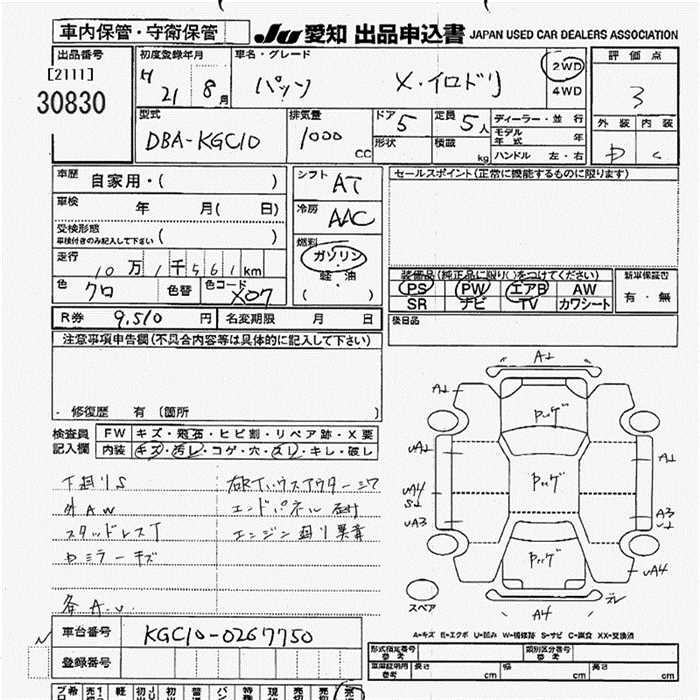 車内保管・守衛保管
JU 愛知 出品申込書 JAPAN USED CAR DEALERS ASSOCIATION
出品番号
[2111]
30830
初度登録年月
H 21 年 8 月
車名・グレード
パッソ X・イロドリ
2WD
4WD
評価点
3
外装 内装
D C
型式
DBA-KGC10
排気量
1000 CC
ドア 5
形状
定員 5 人
積載 kg
ディーラー・並行
モデル年式 年
ハンドル 左・右
車歴 自家用・( )
車検 年 月( 日)
受検形態
車検付きのみ記入して下さい ( )
走行 10万1千561km
色 クロ 色替 色コード X07
シフト AT
冷房 AAC
燃料
ガソリン
軽・油
( )
セールスポイント(正常に機能するものに限ります)
装備品(純正品に限り( )をつけてください)
PS PW エアB AW
SR ナビ TV カワシート
新車保証書
有・無
後日品
R券 9,510 円 名変期限 月 日
注意事項申告欄(不具合内容等は具体的に記入して下さい)
・修復歴 有 (箇所 )
検査員
記入欄
FW キズ・飛石・ヒビ割・リペア跡・X要
内装 キズ・汚レ・コゲ・穴・スレ・キレ・破レ
下廻りS
外AW
スタッドレスT
ロミラーキズ
各A.U.
エンドパネル
エンジン廻り異音
A1
A1
Pッグ
Pッグ
Pッグ
UA1
UA4
S1
UA3
A1
A3
U1
UA4
ズレ
A4
スペア
A=キズ E=エクボ U=凹み W=補修跡 S=サビ C=腐食 XX=交換済
車台番号 KGC10-0267750
登録番号
形式指定番号
参考
類別区分番号
参考
長さ cm 幅 cm 高さ cm